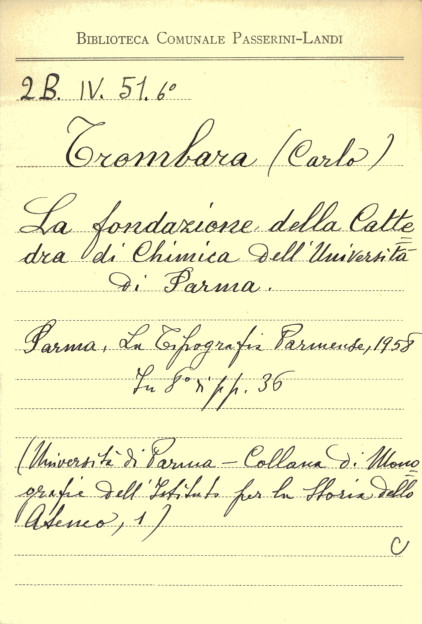 BIBLIOTECA COMUNALE PASSERINI-LANDI
2B. IV. 51. 6°
Trombara (Carlo)
La fondazione della Catte=
dra di Chimica dell'Università
di Parma.
Parma, La Tipografia Parmense, 1958
In 8° di pp. 36
(Università di Parma - Collana di Mono=
grafie dell'Istituto per la Storia dello
Ateneo, 1)
C